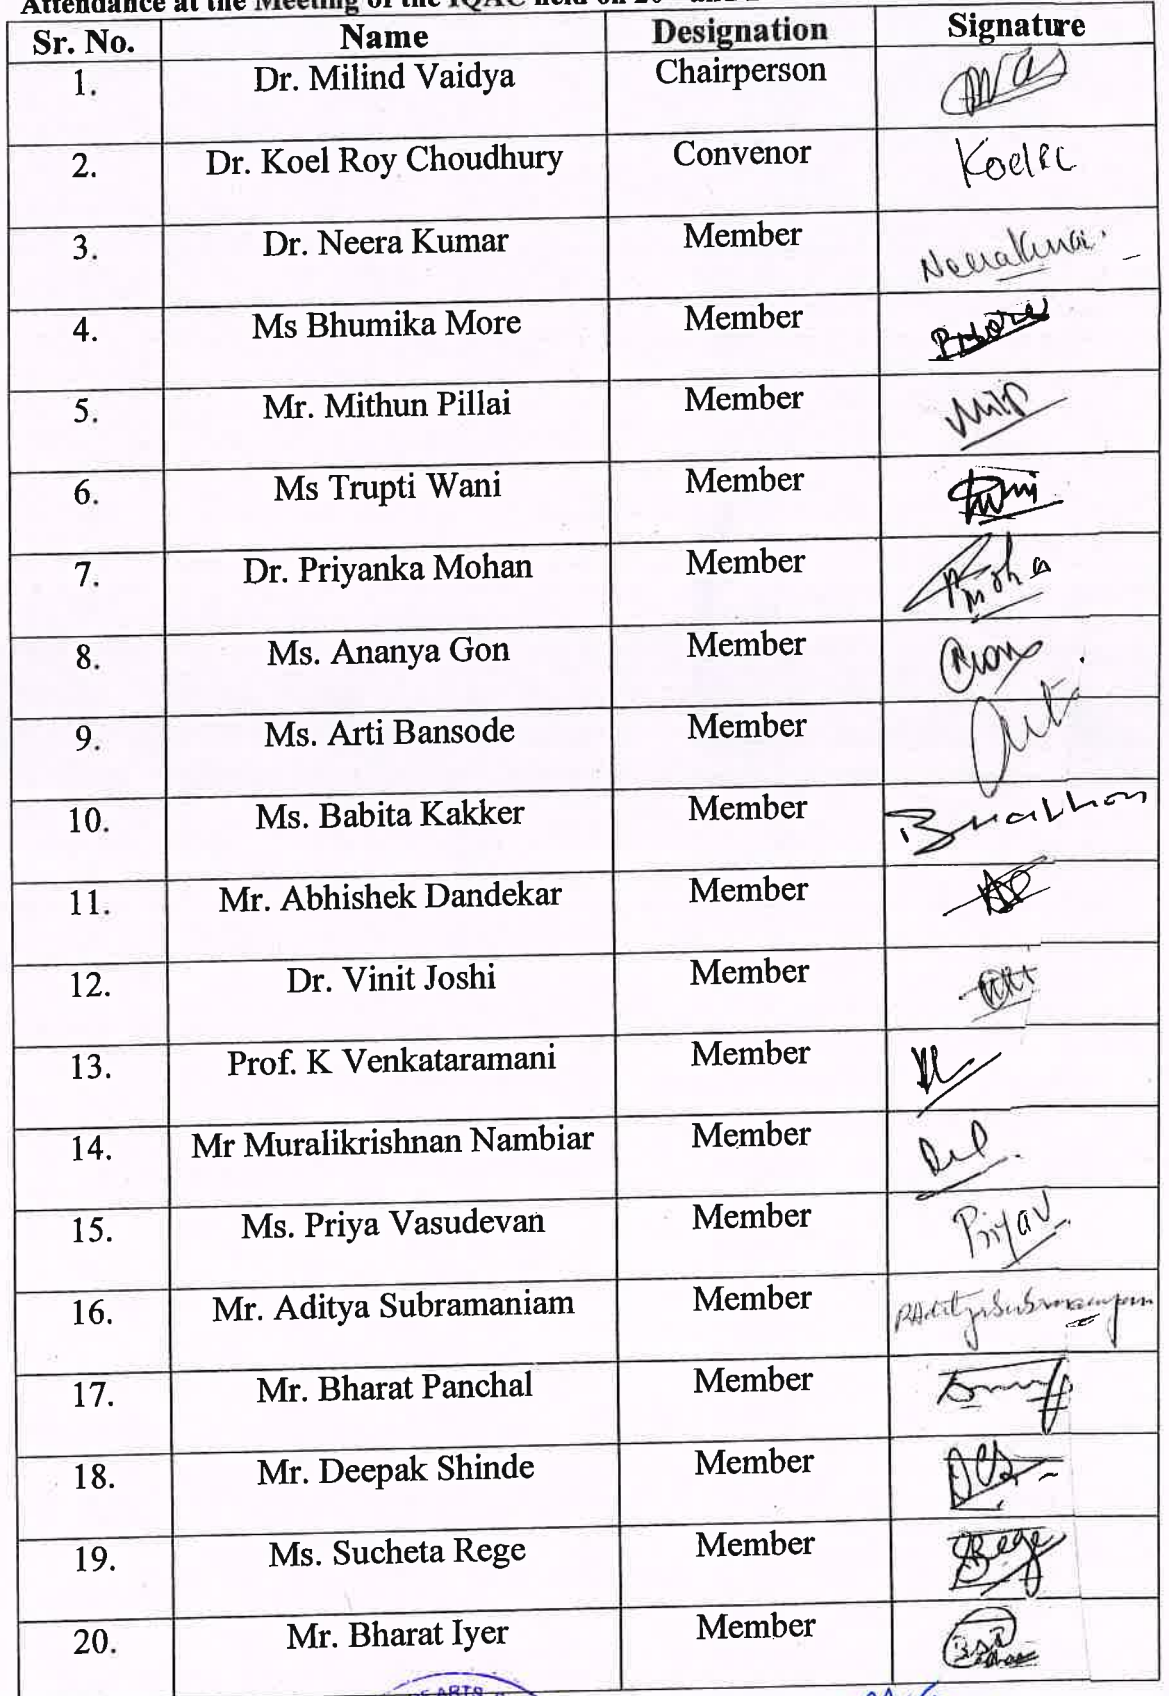 Attendance at the Meeting of the IQAC held on 20
Sr. No. Name Designation Signature
1. Dr. Milind Vaidya Chairperson
2. Dr. Koel Roy Choudhury Convenor KoelRC
3. Dr. Neera Kumar Member NeeraKumar.
4. Ms Bhumika More Member BMore
5. Mr. Mithun Pillai Member
6. Ms Trupti Wani Member
7. Dr. Priyanka Mohan Member
8. Ms. Ananya Gon Member
9. Ms. Arti Bansode Member
10. Ms. Babita Kakker Member
11. Mr. Abhishek Dandekar Member
12. Dr. Vinit Joshi Member
13. Prof. K Venkataramani Member
14. Mr Muralikrishnan Nambiar Member
15. Ms. Priya Vasudevan Member PriyaV
16. Mr. Aditya Subramaniam Member
17. Mr. Bharat Panchal Member
18. Mr. Deepak Shinde Member
19. Ms. Sucheta Rege Member SRege
20. Mr. Bharat Iyer Member
ARTS